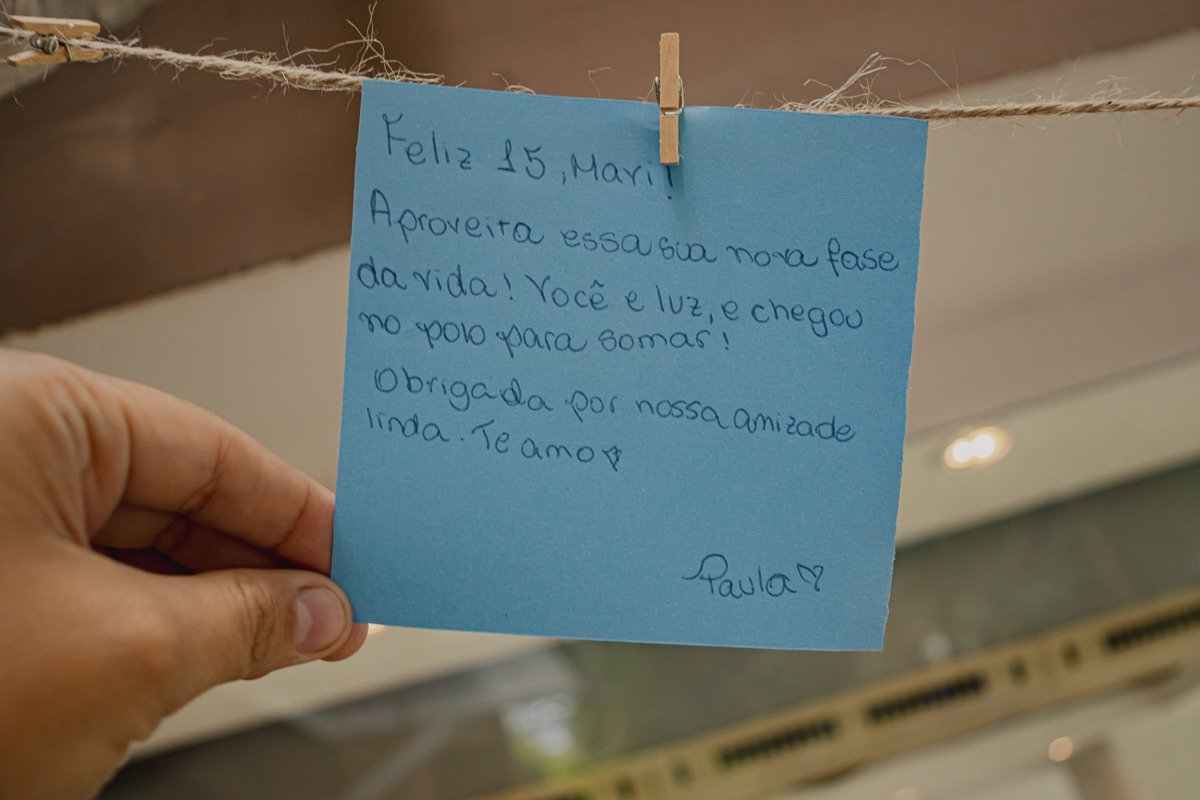 Feliz 15, Mari!
Aproveita essa sua nova fase
da vida! Você e luz, e chegou
no polo para somar!
Obrigada por nossa amizade
linda. Te amo ♡
Paula ♡